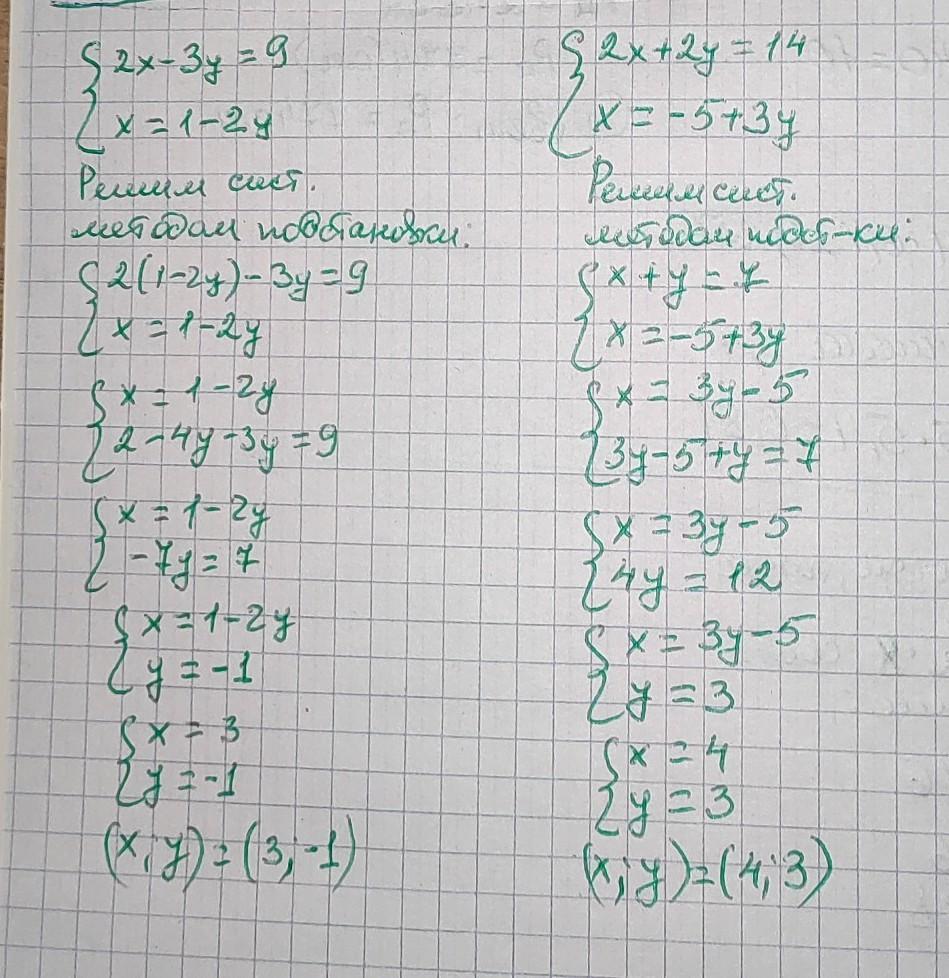 2x-3y=9
x=1-2y
Решим сист.
методом подстановки:
2(1-2y)-3y=9
x=1-2y
x=1-2y
2-4y-3y=9
x=1-2y
-7y=7
x=1-2y
y=-1
x=3
y=-1
(x;y)=(3;-1)
2x+2y=14
x=-5+3y
Решим сист.
методом подст-ки:
x+y=7
x=-5+3y
x=3y-5
3y-5+y=7
x=3y-5
4y=12
x=3y-5
y=3
x=4
y=3
(x;y)=(4;3)